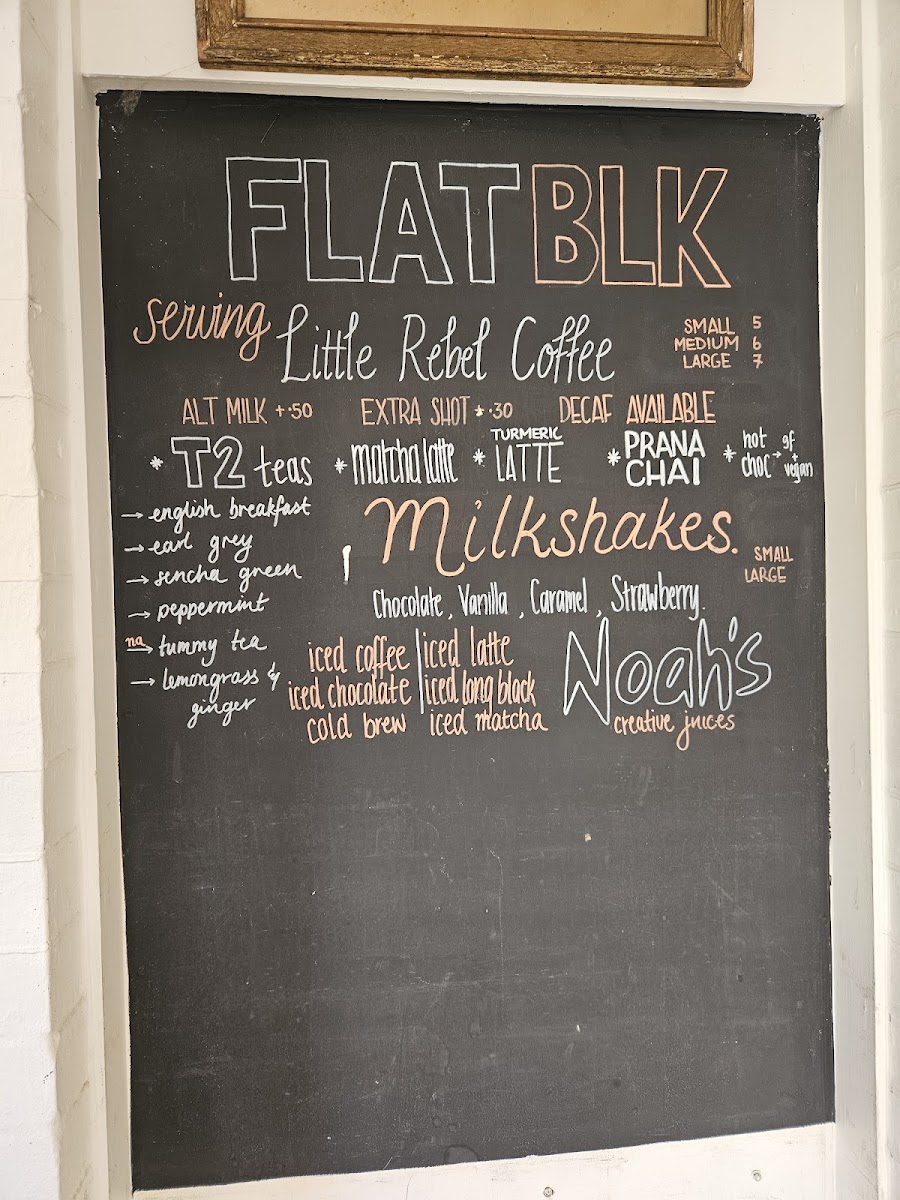 FLAT BLK
serving Little Rebel Coffee
SMALL 5
MEDIUM 6
LARGE 7
ALT MILK +.50 EXTRA SHOT +.30 DECAF AVAILABLE
* T2 teas * matcha latte * TURMERIC LATTE * PRANA CHAI * hot choc → gf + vegan
→ english breakfast
→ earl grey
→ sencha green
→ peppermint
na → tummy tea
→ lemongrass &
ginger
Milkshakes.
SMALL
LARGE
Chocolate, Vanilla, Caramel, Strawberry.
iced coffee | iced latte
iced chocolate | iced long black
cold brew iced matcha
Noah's
creative juices